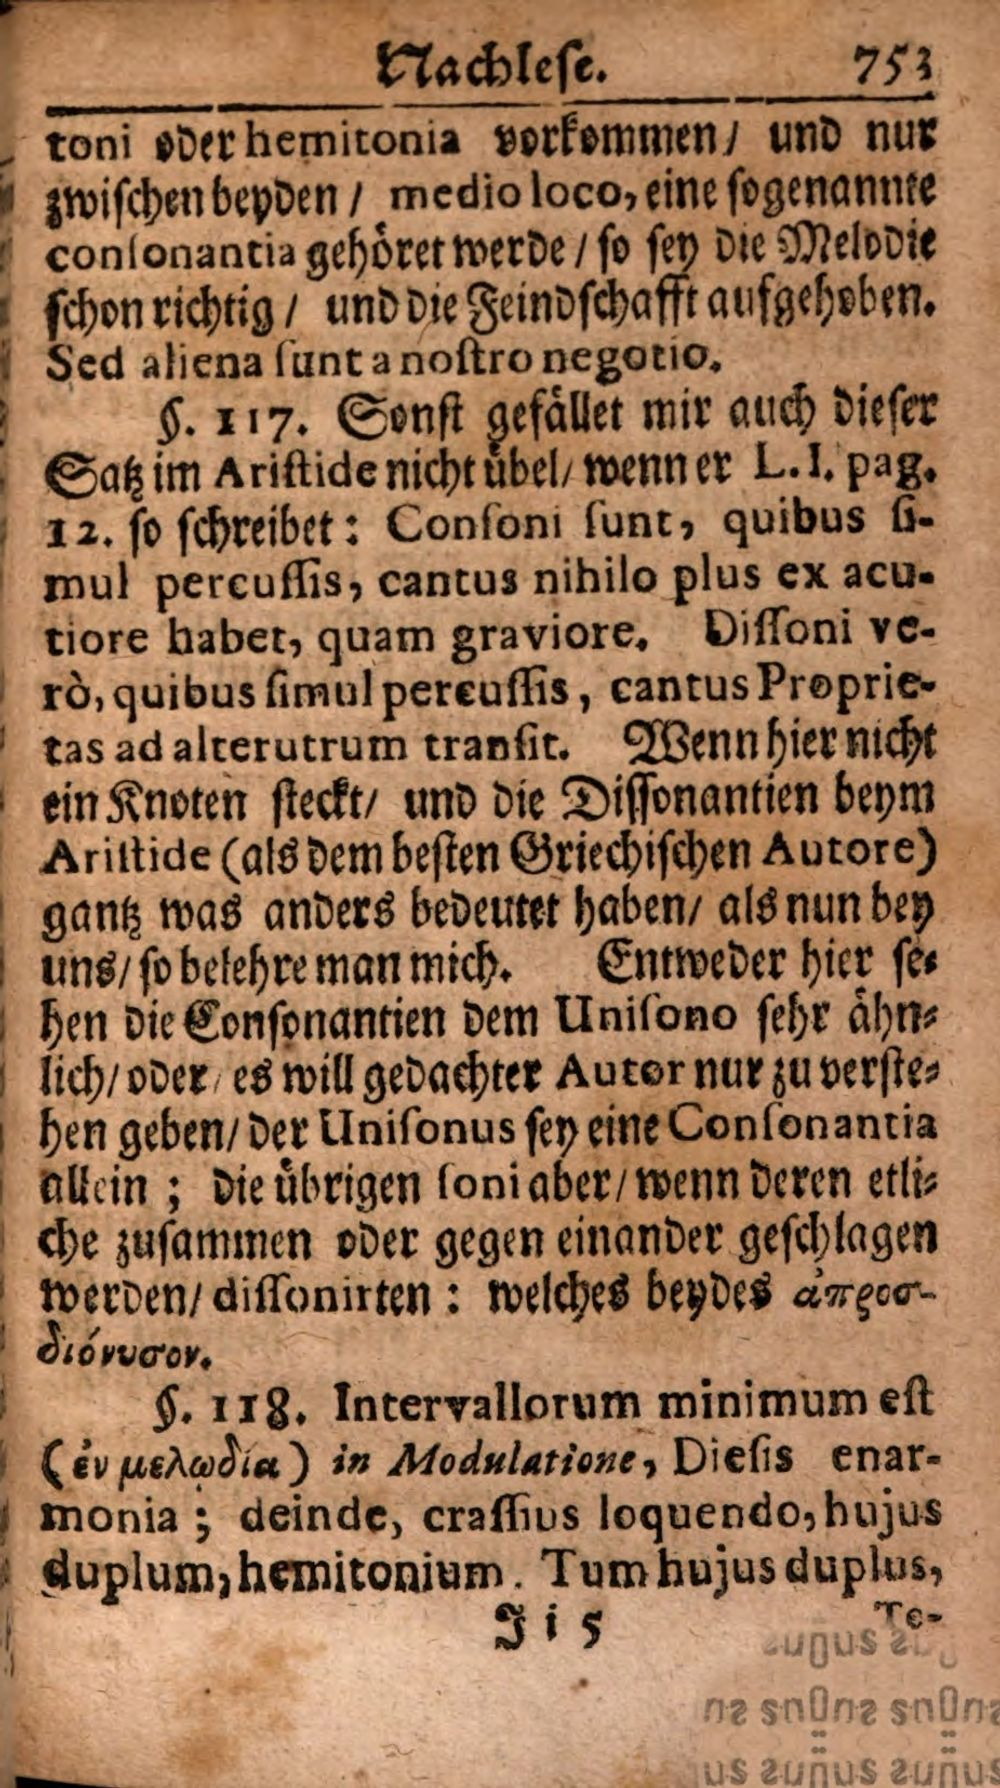 Nachleſe. 753
toni oder hemitonia vorkommen / und nur
zwiſchen beyden / medio loco, eine ſogenannte
conſonantia gehöret werde / ſo ſey die Melodie
ſchon richtig / und die Feindſchafft aufgehoben.
Sed aliena ſunt a noſtro negotio.
§. 117. Sonſt gefället mir auch dieſer
Satz im Ariſtide nicht übel / wenn er L. I. pag.
12. ſo ſchreibet: Conſoni ſunt, quibus ſi-
mul percuſſis, cantus nihilo plus ex acu-
tiore habet, quam graviore. Diſſoni ve-
rò, quibus ſimul percuſſis, cantus Proprie-
tas ad alterutrum tranſit. Wenn hier nicht
ein Knoten ſteckt / und die Diſſonantien beym
Ariſtide (als dem beſten Griechiſchen Autore)
gantz was anders bedeutet haben / als nun bey
uns / ſo belehre man mich. Entweder hier ſe-
hen die Conſonantien dem Uniſono ſehr ähn-
lich / oder / es will gedachter Autor nur zu verſte-
hen geben / der Uniſonus ſey eine Conſonantia
allein ; die übrigen ſoni aber / wenn deren etli-
che zuſammen oder gegen einander geſchlagen
werden / diſſonirten : welches beydes ἀπροσ-
διόνυσον.
§. 118. Intervallorum minimum eſt
(ἐν μελῳδία) in Modulatione, Dieſis enar-
monia ; deinde, craſſius loquendo, hujus
duplum, hemitonium. Tum hujus duplus,
Iii 5 To-